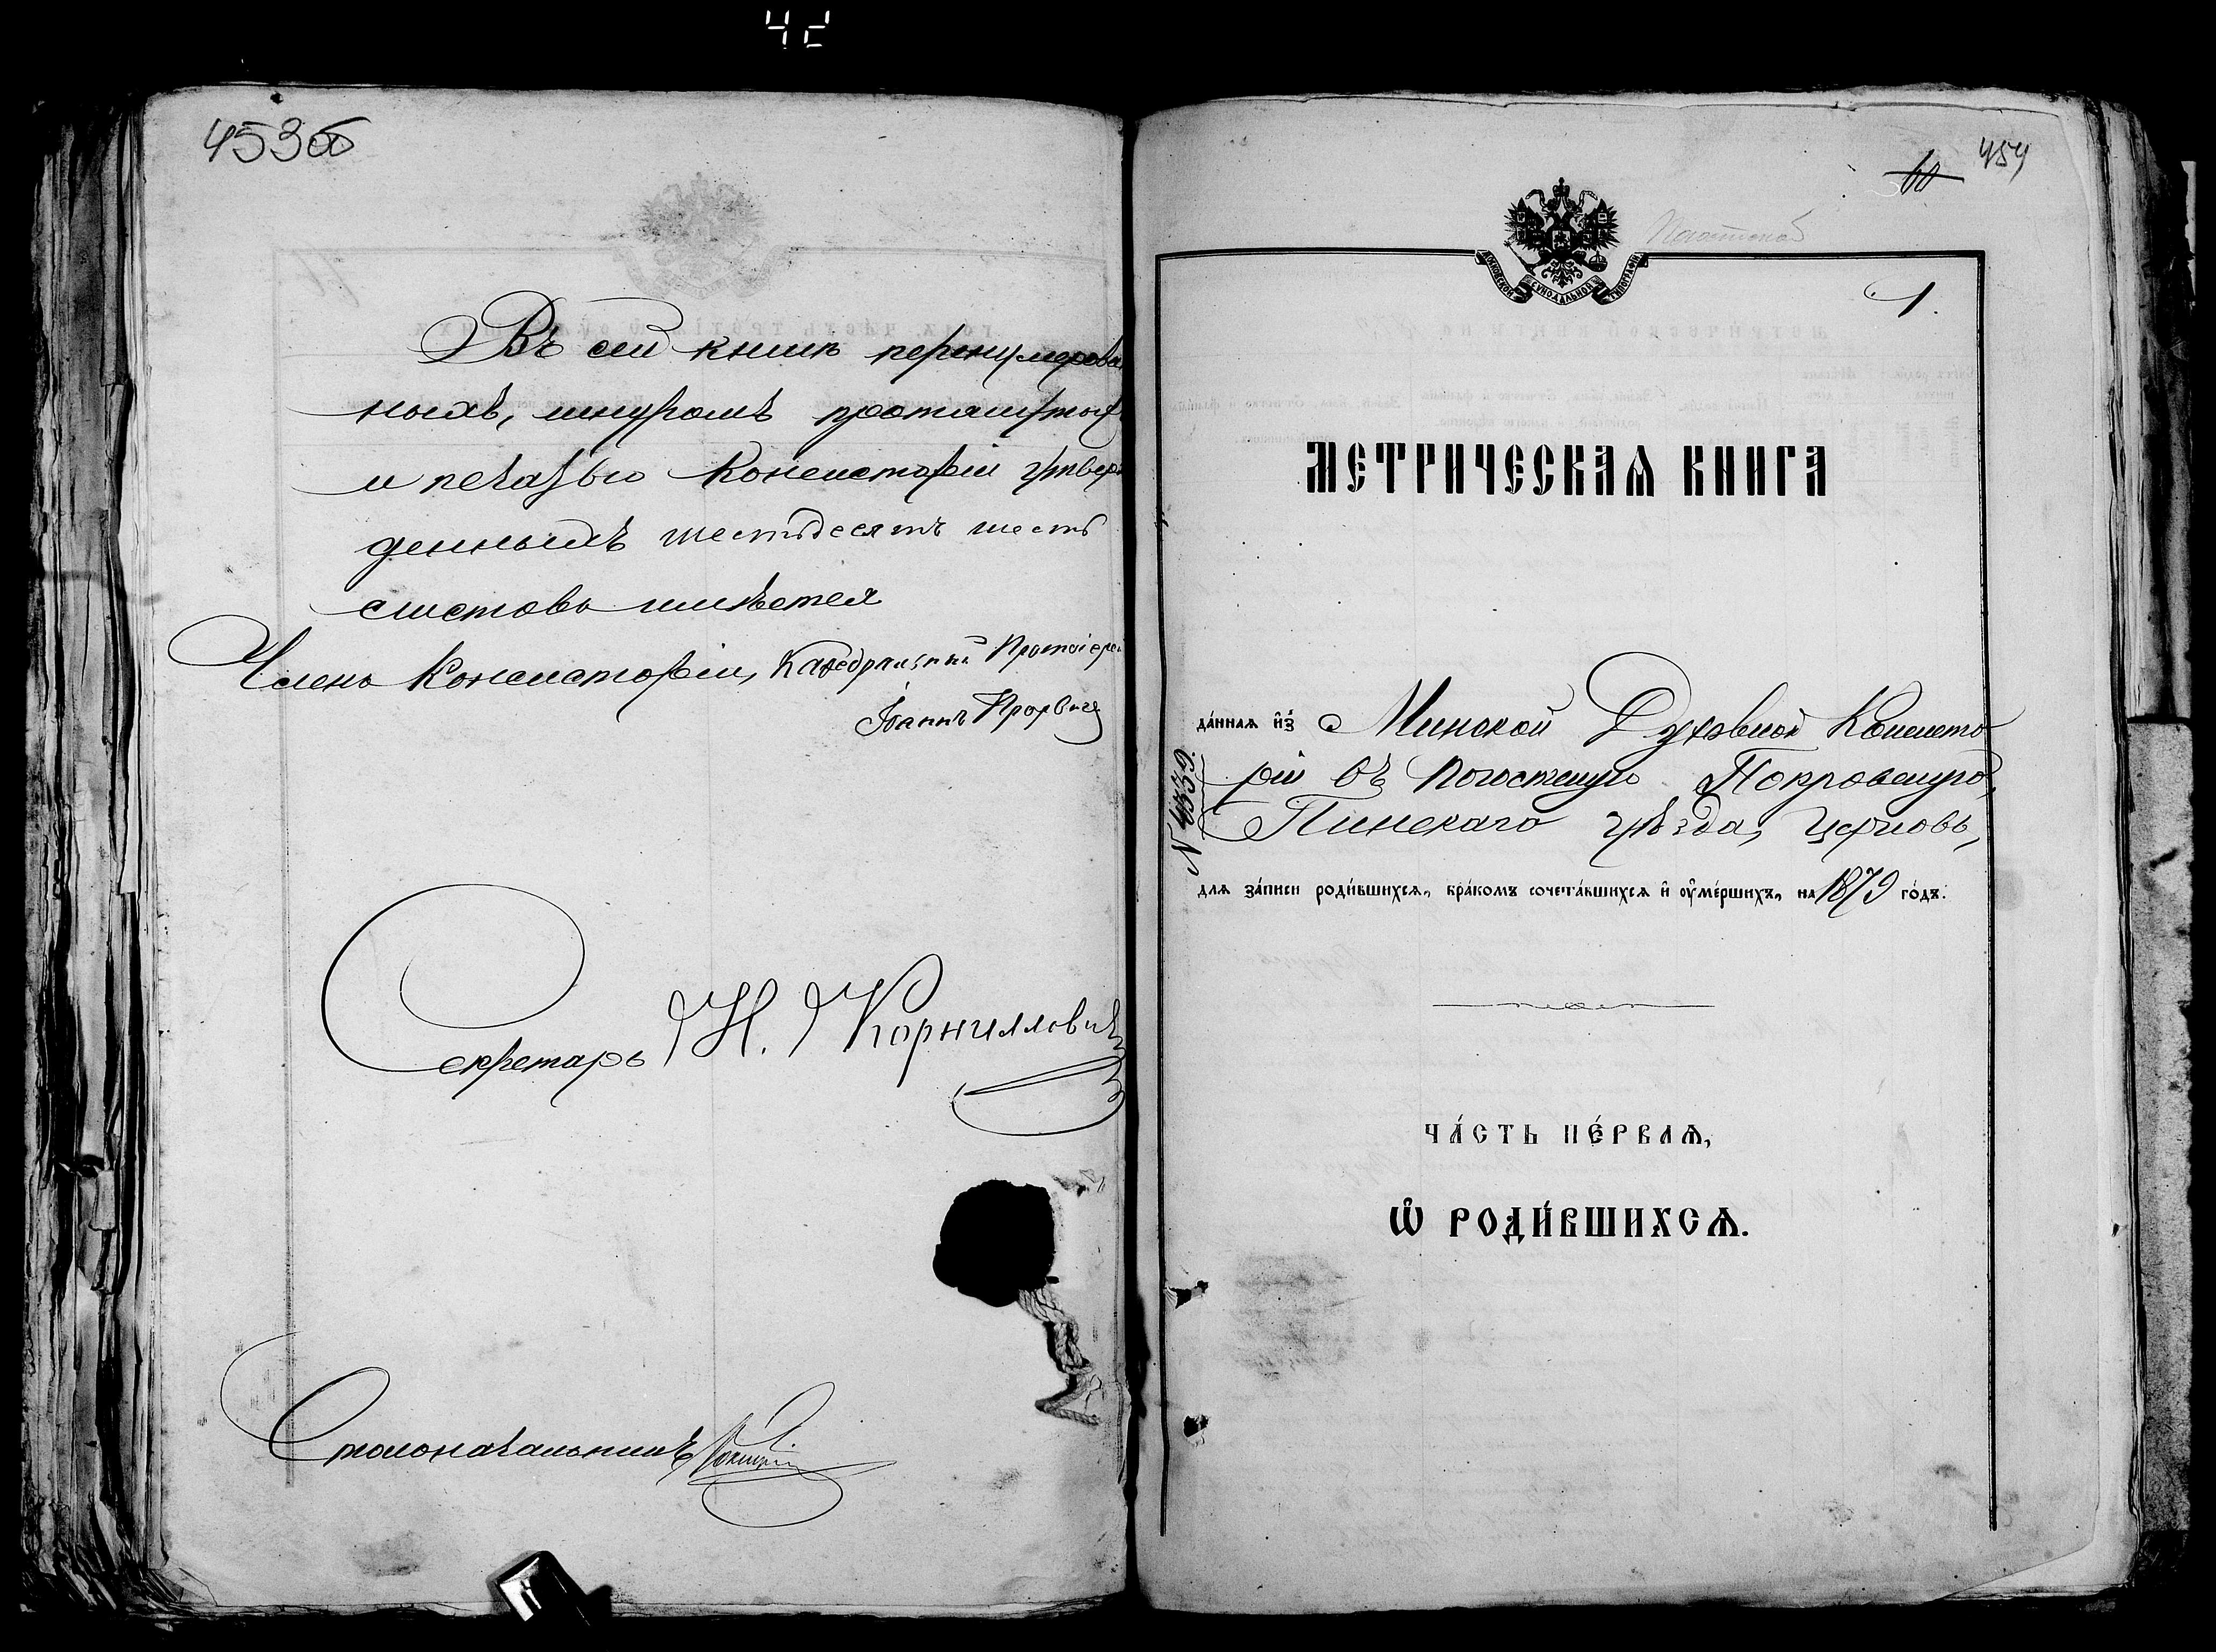 42
453об
Въ сей книгѣ перенумерован
ныхъ, шнуромъ прошитых
и печатью Консисторіи утверж
денныхъ шестьдесятъ шесть
листовъ имѣется
Членъ Консисторіи, Каѳедральный Протоіерей
Іоаннъ
Секретарь Н. Корниллович
Столоначальникъ
454
60
МОСКОВСКОЙ СѴНОДАЛЬНОЙ ТИПОГРАФІИ
1.
МЕТРИЧЕСКАѦ КНИГА
да́ннаѧ и҆з̾ Минской Духовной Консисто
ріи въ Погостскую Покровскую,
Пинскаго уѣзда, церковь,
№ 4559.
длѧ за́писи роди́вшихсѧ, бра́комъ сочета́вшихсѧ и҆ ᲂу҆ме́ршихъ, на 1879 го́дъ.
ЧА́СТЬ ПЕ́РВАѦ,
Ѡ҆ РОДИ́ВШИХСѦ.